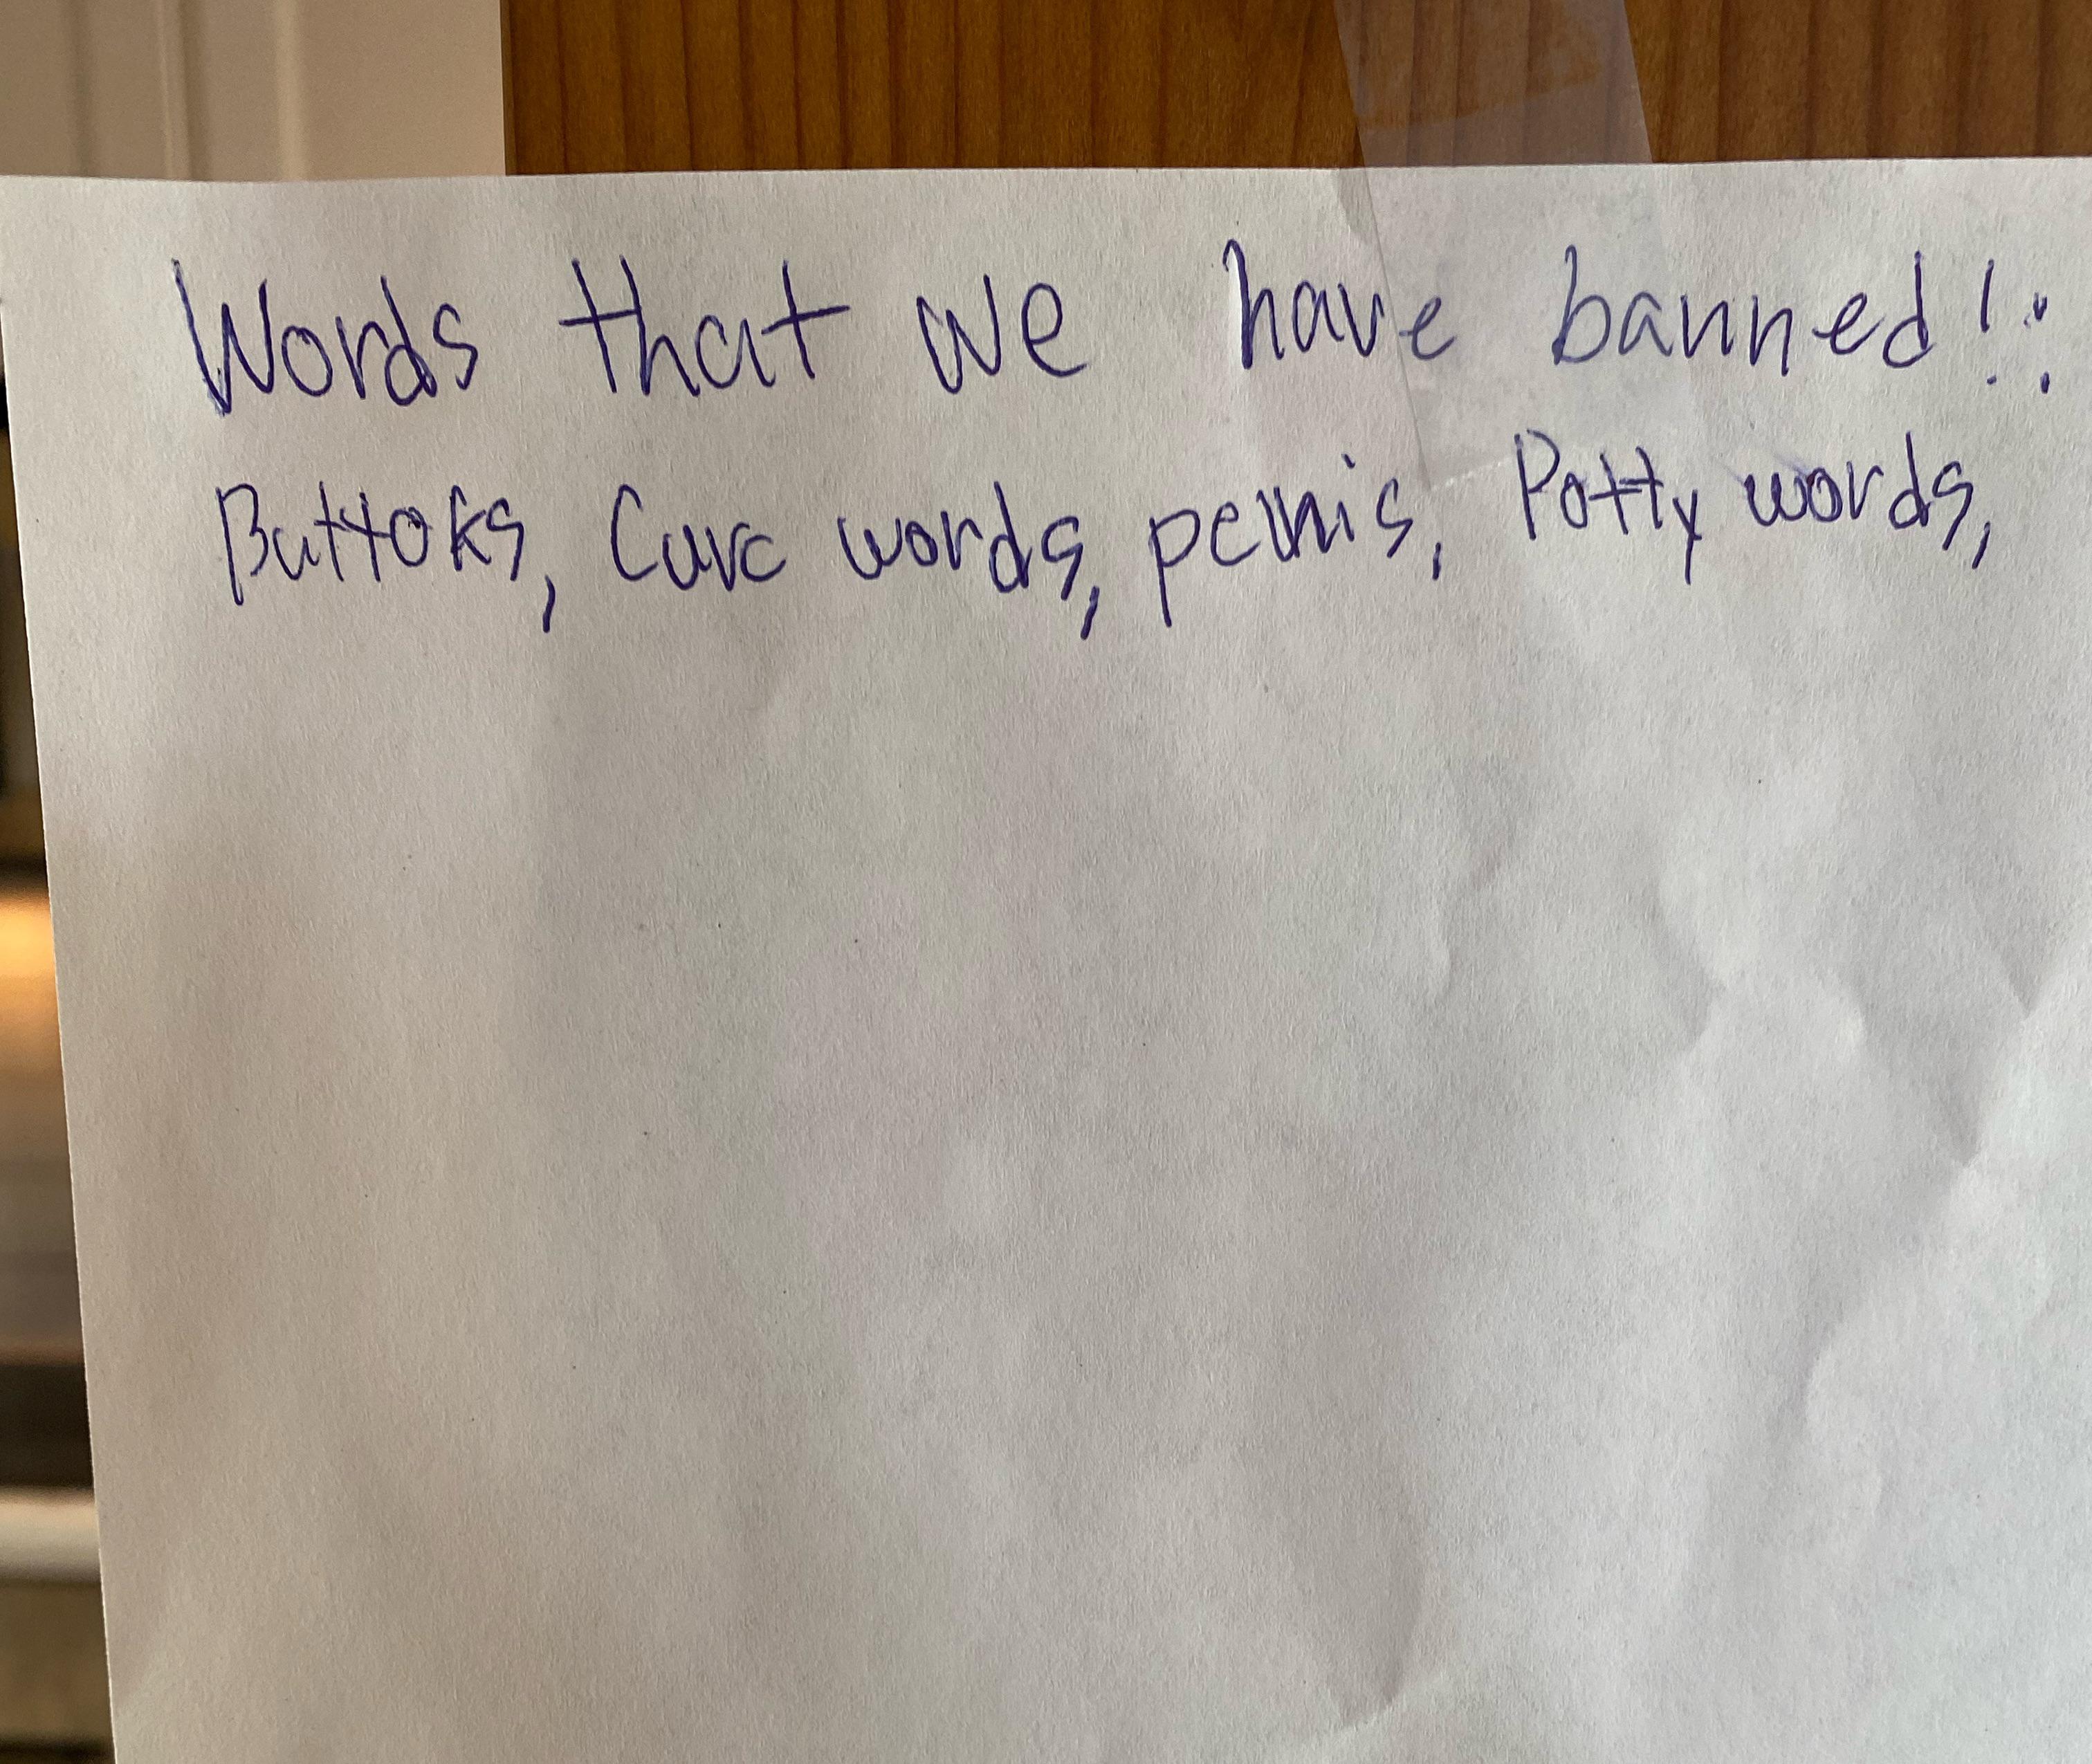 Words that we have banned!:
Buttoks, Curc words, pennis, Potty words,